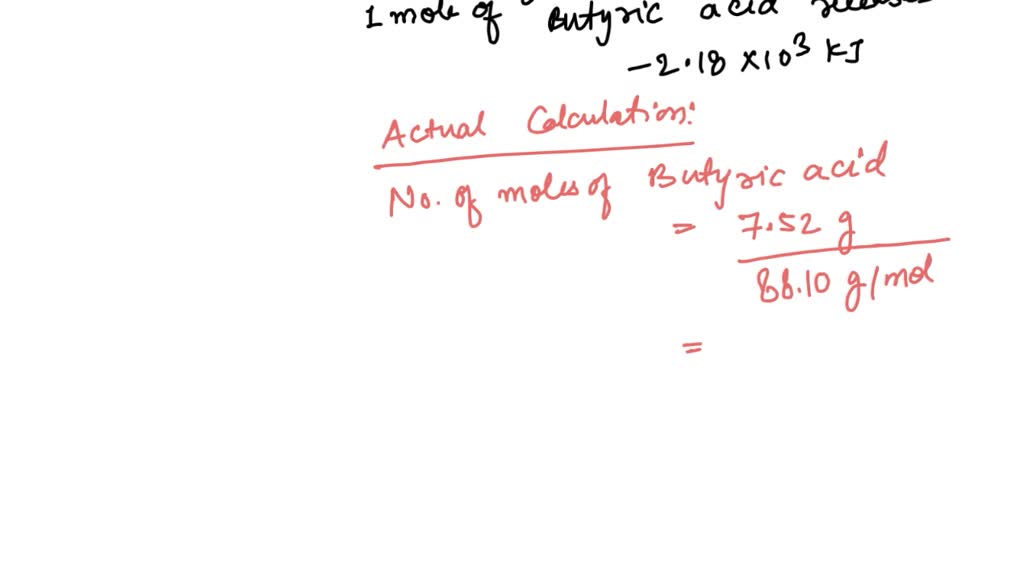 1 mole of Butyric acid releases
-2.18 ×10³ KJ
Actual Calculation:
No. of moles of Butyric acid
= 7.52 g
88.10 g/mol
=